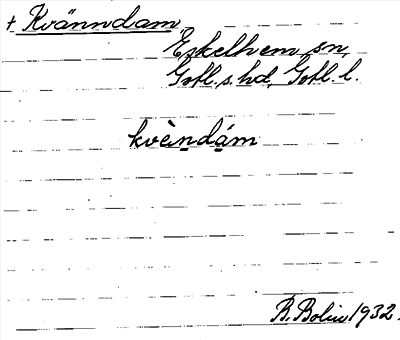 + Kvänndam
Eskelhem sn,
Gotl. s. hd, Gotl. l.
kvèndám
B. Bolin 1932.